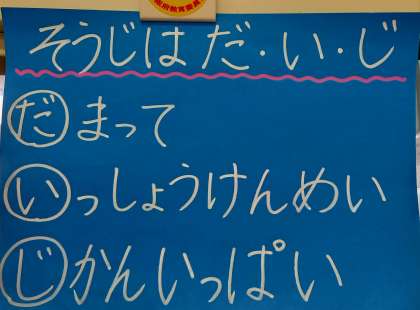 そうじはだ・い・じ
だまって
いっしょうけんめい
じかんいっぱい